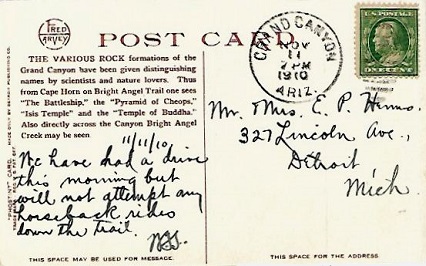 FRED
HARVEY
POST CARD
THE VARIOUS ROCK formations of the
Grand Canyon have been given distinguishing
names by scientists and nature lovers. Thus
from Cape Horn on Bright Angel Trail one sees
"The Battleship," the "Pyramid of Cheops,"
"Isis Temple" and the "Temple of Buddha."
Also directly across the Canyon Bright Angel
Creek may be seen
11/11/10
We have had a drive
this morning but
will not attempt any
horseback rides
down the trail.
THIS SPACE MAY BE USED FOR MESSAGE.
"PHOSTINT" CARD
MADE ONLY BY DETROIT PUBLISHING CO.
GRAND CANYON
NOV
11
7 PM
1910
ARIZ.
U.S. POSTAGE
ONE CENT
Mr. Mrs. E. P. Hinms.
327 Lincoln Ave.,
Detroit
Mich
THIS SPACE FOR THE ADDRESS.